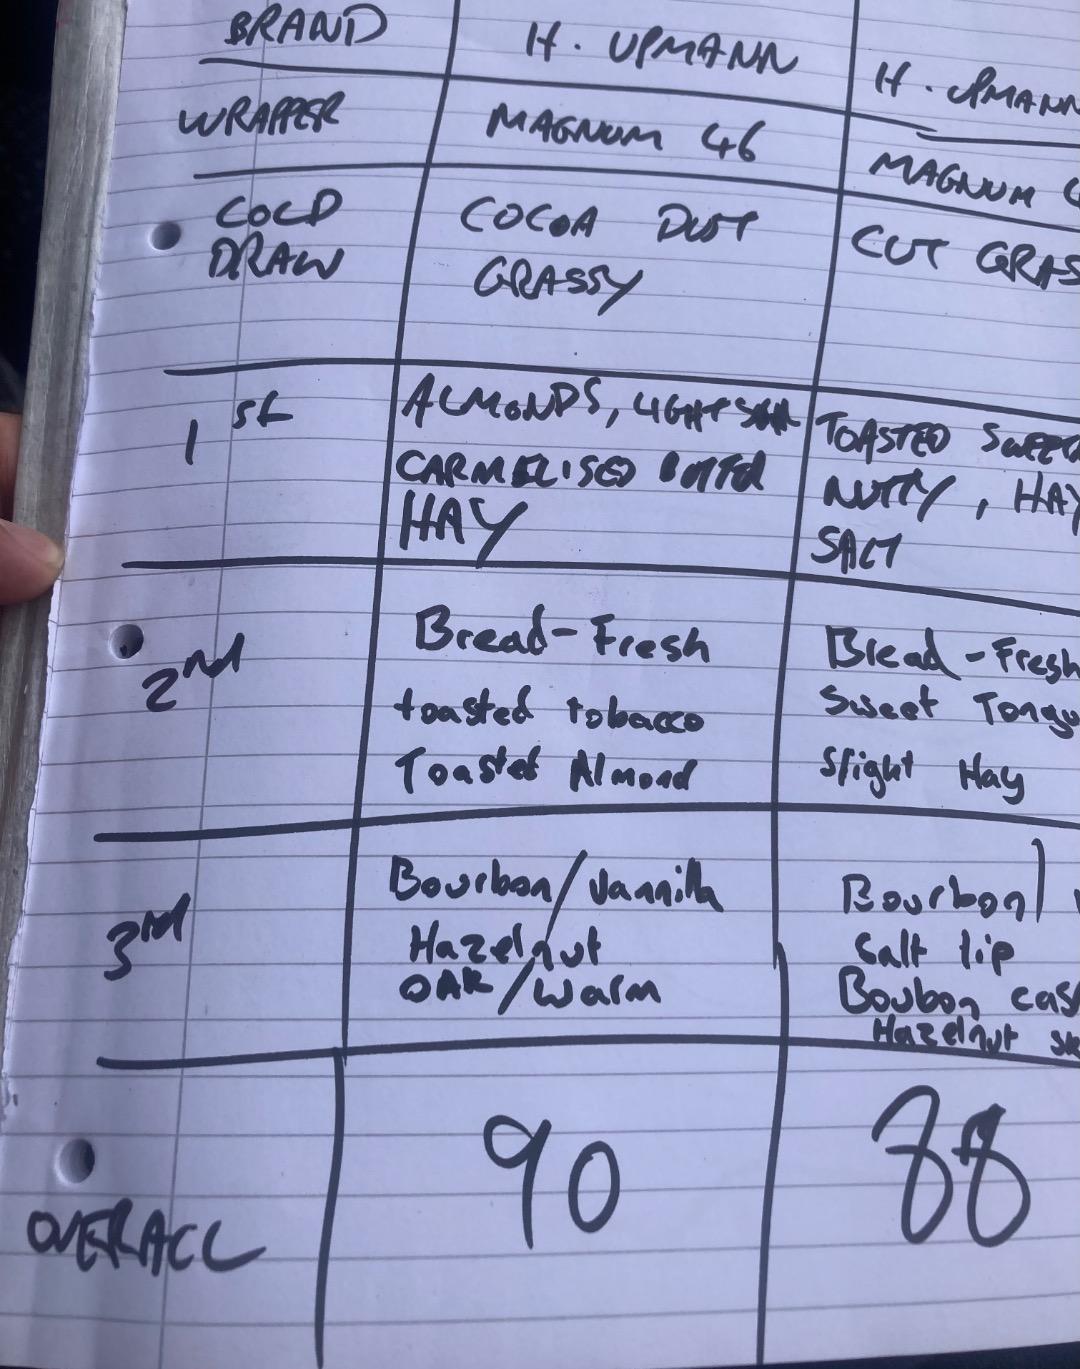 BRAND H. UPMANN H. UPMANN
WRAPPER MAGNUM 46 MAGNUM
COLD DRAW
COCOA DUST
GRASSY
CUT GRAS
1st
ALMONDS, LIGHT
CARMELISED
HAY
TOASTED SWEET
NUTTY, HAY
SALT
2nd
Bread-Fresh
toasted tobacco
Toasted Almond
Bread-Fresh
Sweet Tongu
Slight Hay
3rd
Bourbon/Vannilla
Hazelnut
OAK/Warm
Bourbon/
Salt lip
Boubon cas
Hazelnut sk
OVERALL 90 88